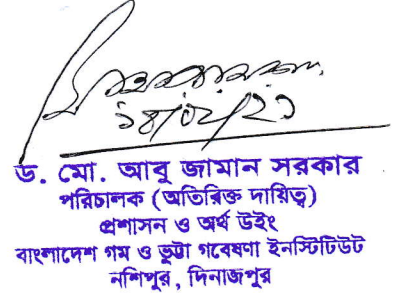 ড. মো. আবু জামান সরকার
পরিচালক (অতিরিক্ত দায়িত্ব)
প্রশাসন ও অর্থ উইং
বাংলাদেশ গম ও ভুট্টা গবেষণা ইনস্টিটিউট
নশিপুর, দিনাজপুর